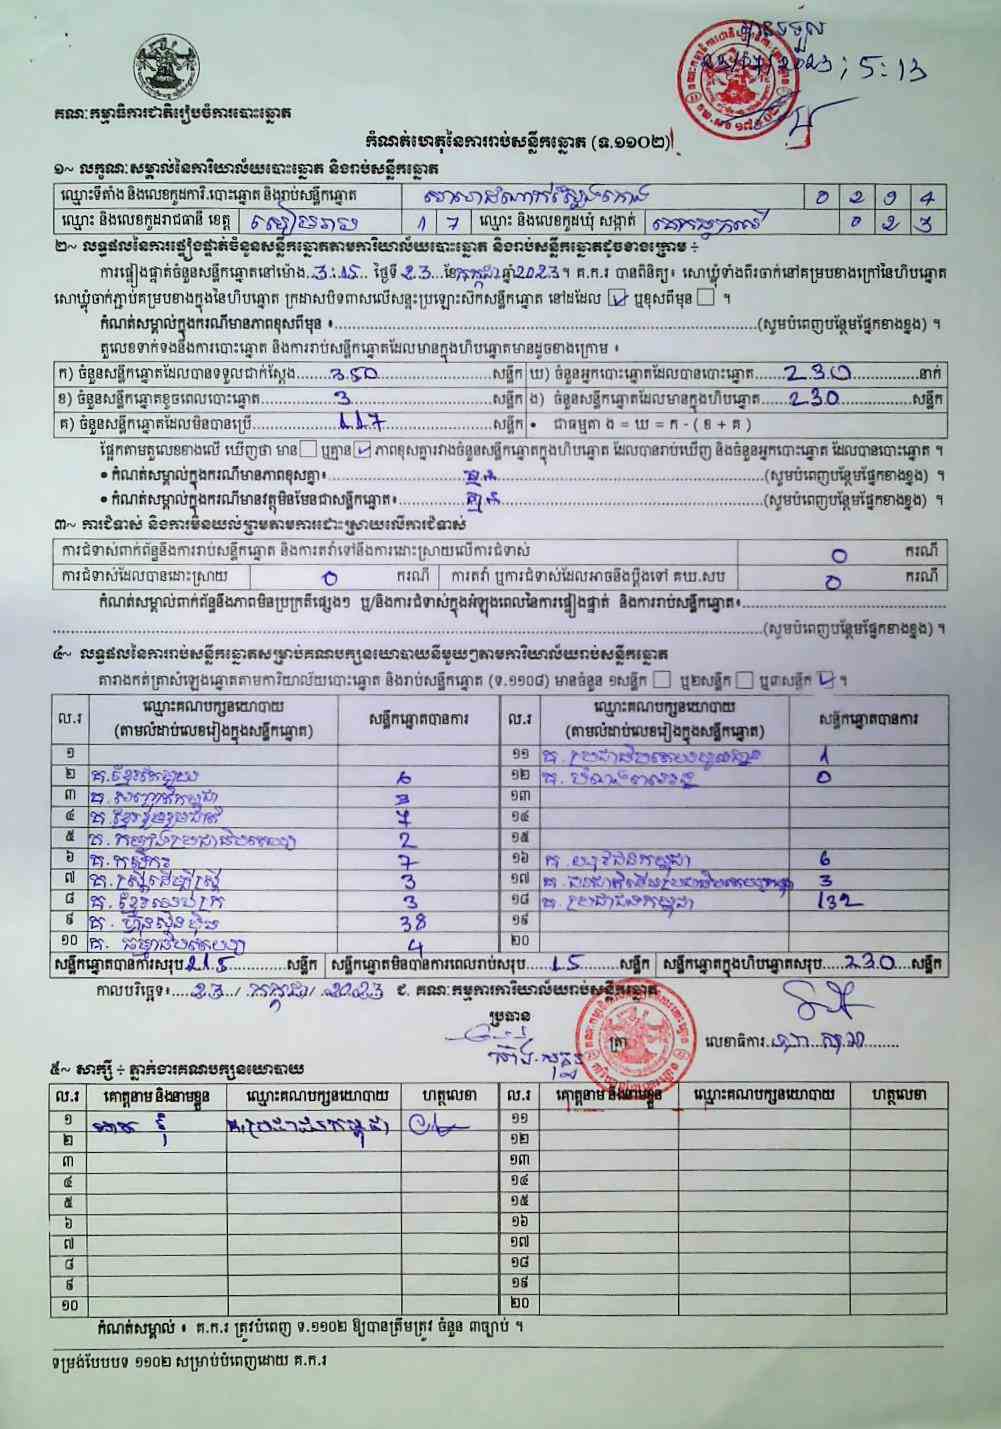 បានទទួល
23/07/2023 ; 5:13
គណៈកម្មាធិការជាតិរៀបចំការបោះឆ្នោត
កំណត់ហេតុនៃការរាប់សន្លឹកឆ្នោត (ទ.១១០២)
១~ លក្ខណៈសម្គាល់នៃការិយាល័យបោះឆ្នោត និងរាប់សន្លឹកឆ្នោត
ឈ្មោះទីតាំង និងលេខកូដការិ.បោះឆ្នោត និងរាប់សន្លឹកឆ្នោត 0 2 9 4
ឈ្មោះ និងលេខកូដរាជធានី ខេត្ត សៀមរាប 1 7 ឈ្មោះ និងលេខកូដឃុំ សង្កាត់ 0 2 3
២~ លទ្ធផលនៃការផ្ទៀងផ្ទាត់ចំនួនសន្លឹកឆ្នោតតាមការិយាល័យបោះឆ្នោត និងរាប់សន្លឹកឆ្នោតដូចខាងក្រោម ÷
ការផ្ទៀងផ្ទាត់ចំនួនសន្លឹកឆ្នោតនៅម៉ោង..3:15.. ថ្ងៃទី 23 ខែ កក្កដា ឆ្នាំ 2023 ។ គ.ក.រ បានពិនិត្យ៖ សោឃ្លុំទាំងពីរចាក់នៅគម្របខាងក្រៅនៃហិបឆ្នោត
សោឃ្លុំចាក់ភ្ជាប់គម្របខាងក្នុងនៃហិបឆ្នោត ក្រដាសបិទពាសលើសន្ទះប្រឡោះសិកសន្លឹកឆ្នោត នៅដដែល ☑ ឬខុសពីមុន ☐ ។
កំណត់សម្គាល់ក្នុងករណីមានភាពខុសពីមុន ៖ (សូមបំពេញបន្ថែមផ្នែកខាងខ្នង) ។
តួលេខទាក់ទងនឹងការបោះឆ្នោត និងការរាប់សន្លឹកឆ្នោតដែលមានក្នុងហិបឆ្នោតមានដូចខាងក្រោម ៖
ក) ចំនួនសន្លឹកឆ្នោតដែលបានទទួលជាក់ស្តែង 350 សន្លឹក ឃ) ចំនួនអ្នកបោះឆ្នោតដែលបានបោះឆ្នោត 230 នាក់
ខ) ចំនួនសន្លឹកឆ្នោតខូចពេលបោះឆ្នោត 3 សន្លឹក ង) ចំនួនសន្លឹកឆ្នោតដែលមានក្នុងហិបឆ្នោត 230 សន្លឹក
គ) ចំនួនសន្លឹកឆ្នោតដែលមិនបានប្រើ 117 សន្លឹក • ជាធម្មតា ង = ឃ = ក - ( ខ + គ )
ផ្អែកតាមតួលេខខាងលើ ឃើញថា មាន ☐ ឬគ្មាន ☑ ភាពខុសគ្នារវាងចំនួនសន្លឹកឆ្នោតក្នុងហិបឆ្នោត ដែលបានរាប់ឃើញ និងចំនួនអ្នកបោះឆ្នោត ដែលបានបោះឆ្នោត ។
• កំណត់សម្គាល់ក្នុងករណីមានភាពខុសគ្នា៖ គ្មាន (សូមបំពេញបន្ថែមផ្នែកខាងខ្នង) ។
• កំណត់សម្គាល់ក្នុងករណីមានវត្ថុមិនមែនជាសន្លឹកឆ្នោត៖ គ្មាន (សូមបំពេញបន្ថែមផ្នែកខាងខ្នង) ។
៣~ ការជំទាស់ និងការមិនយល់ព្រមតាមការដោះស្រាយលើការជំទាស់
ការជំទាស់ពាក់ព័ន្ធនឹងការរាប់សន្លឹកឆ្នោត និងការតវ៉ាទៅនឹងការដោះស្រាយលើការជំទាស់ 0 ករណី
ការជំទាស់ដែលបានដោះស្រាយ 0 ករណី ការតវ៉ា ឬការជំទាស់ដែលអាចនឹងប្តឹងទៅ គឃ.សប 0 ករណី
កំណត់សម្គាល់ពាក់ព័ន្ធនឹងភាពមិនប្រក្រតីផ្សេងៗ ឬ/និងការជំទាស់ក្នុងអំឡុងពេលនៃការផ្ទៀងផ្ទាត់ និងការរាប់សន្លឹកឆ្នោត៖
(សូមបំពេញបន្ថែមផ្នែកខាងខ្នង) ។
៤~ លទ្ធផលនៃការរាប់សន្លឹកឆ្នោតសម្រាប់គណបក្សនយោបាយនីមួយៗតាមការិយាល័យរាប់សន្លឹកឆ្នោត
តារាងកត់ត្រាសំឡេងឆ្នោតតាមការិយាល័យបោះឆ្នោត និងរាប់សន្លឹកឆ្នោត (ទ.១១០៨) មានចំនួន ១សន្លឹក ☐ ឬ២សន្លឹក ☐ ឬ៣សន្លឹក ☑ ។
ល.រ ឈ្មោះគណបក្សនយោបាយ (តាមលំដាប់លេខរៀងក្នុងសន្លឹកឆ្នោត) សន្លឹកឆ្នោតបានការ ល.រ ឈ្មោះគណបក្សនយោបាយ (តាមលំដាប់លេខរៀងក្នុងសន្លឹកឆ្នោត) សន្លឹកឆ្នោតបានការ
១ ១១ 1
២ 6 ១២ 0
៣ គ. សញ្ជាតិកម្ពុជា 3 ១៣
៤ គ. ខ្មែររួបរួមជាតិ 7 ១៤
៥ 2 ១៥
៦ គ. កសិករ 7 ១៦ គ. យុវជនកម្ពុជា 6
៧ គ. ស្ត្រីដើម្បីស្ត្រី 3 ១៧ 3
៨ គ. ខ្មែរឈប់ក្រ 3 ១៨ គ. ប្រជាជនកម្ពុជា 132
៩ គ. ហ្វ៊ុនស៊ិនប៉ិច 38 ១៩
១០ គ. ធម្មាធិបតេយ្យ 4 ២០
សន្លឹកឆ្នោតបានការសរុប 215 សន្លឹក សន្លឹកឆ្នោតមិនបានការពេលរាប់សរុប 15 សន្លឹក សន្លឹកឆ្នោតក្នុងហិបឆ្នោតសរុប 230 សន្លឹក
កាលបរិច្ឆេទ៖ 23 / កក្កដា / 2023 ជ. គណៈកម្មការការិយាល័យរាប់សន្លឹកឆ្នោត
ប្រធាន
ត្រា លេខាធិការ
៥~ សាក្សី ÷ ភ្នាក់ងារគណបក្សនយោបាយ
ល.រ គោត្តនាម និងនាមខ្លួន ឈ្មោះគណបក្សនយោបាយ ហត្ថលេខា ល.រ គោត្តនាម និងនាមខ្លួន ឈ្មោះគណបក្សនយោបាយ ហត្ថលេខា
១ គ. ប្រជាជនកម្ពុជា ១១
២ ១២
៣ ១៣
៤ ១៤
៥ ១៥
៦ ១៦
៧ ១៧
៨ ១៨
៩ ១៩
១០ ២០
កំណត់សម្គាល់ ៖ គ.ក.រ ត្រូវបំពេញ ទ.១១០២ ឱ្យបានត្រឹមត្រូវ ចំនួន ៣ច្បាប់ ។
ទម្រង់បែបបទ ១១០២ សម្រាប់បំពេញដោយ គ.ក.រ